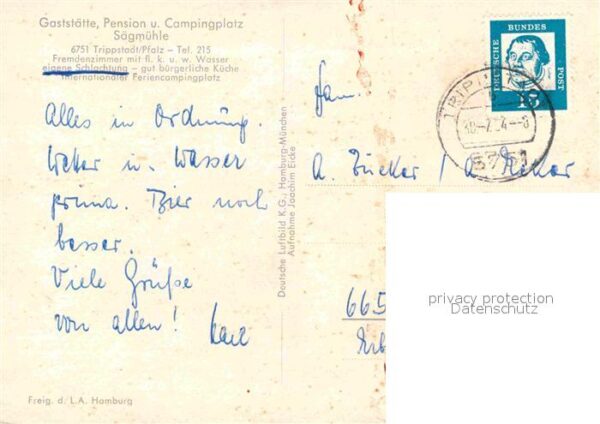 Gaststätte, Pension u. Campingplatz
Sägmühle
6751 Trippstadt/Pfalz – Tel. 215
Fremdenzimmer mit fl. k. u. w. Wasser
eigene Schlachtung – gut bürgerliche Küche
Internationaler Feriencampingplatz
Alles in Ordnung.
Wetter u. Wasser
prima. Bier noch
besser.
Viele Grüße
von allen! Karl
Freig. d. L.A. Hamburg
Deutsche Luftbild K.G., Hamburg-München
Aufnahme Joachim Eicke
DEUTSCHE BUNDES POST
15
Fam.
665
privacy protection
Datenschutz